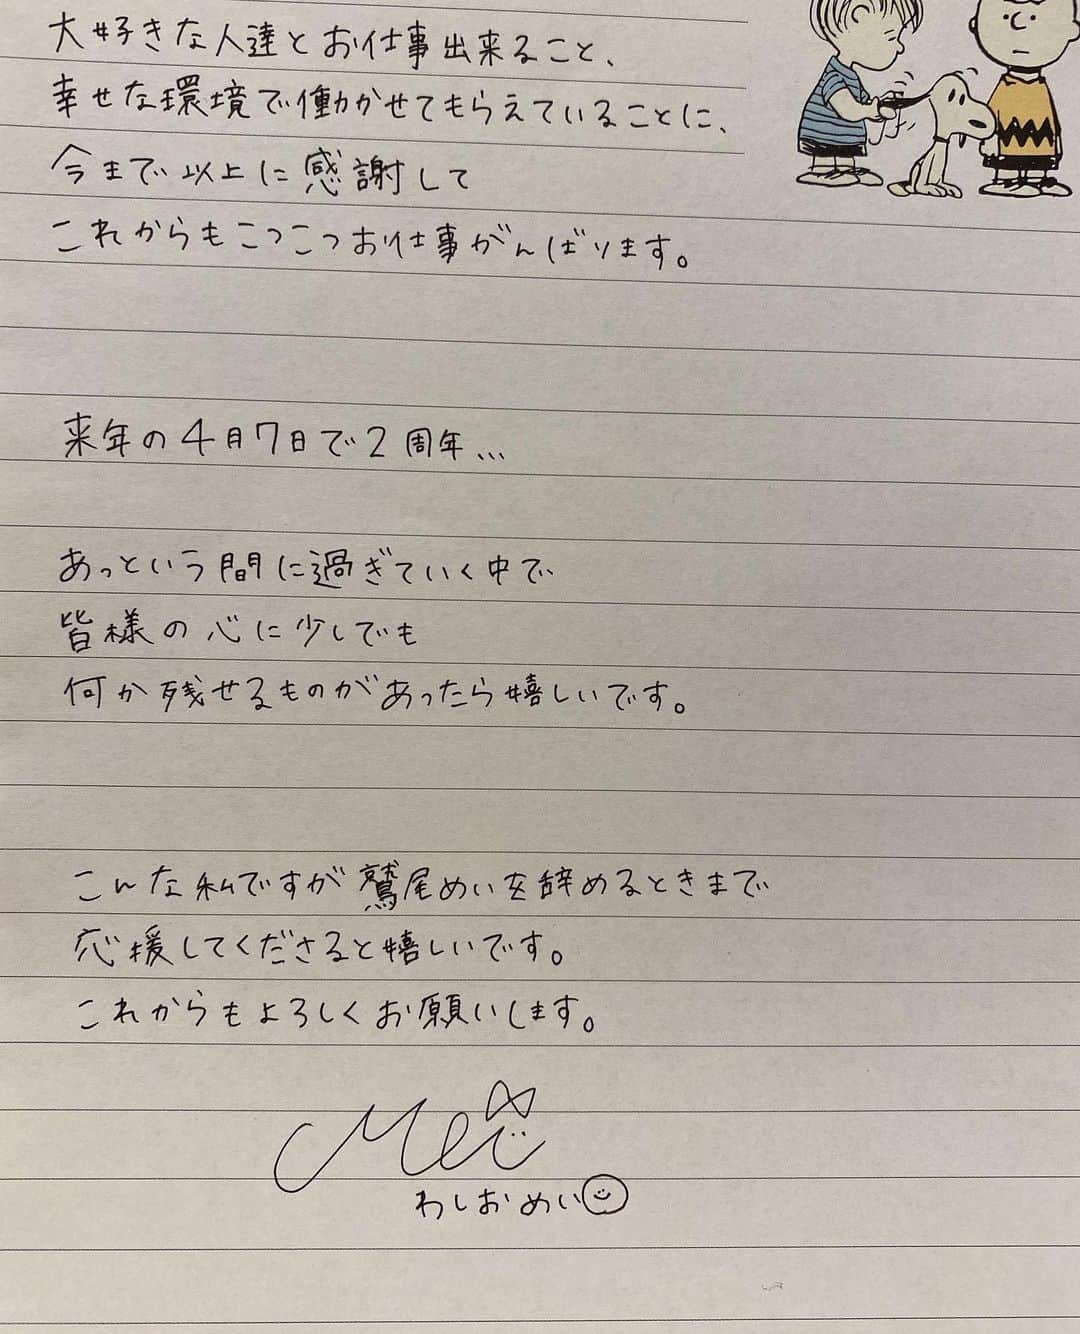 大好きな人達とお仕事出来ること、
幸せな環境で働かせてもらえていることに、
今まで以上に感謝して
これからもこつこつお仕事がんばります。
来年の4月7日で2周年...
あっという間に過ぎていく中で
皆様の心に少しでも
何か残せるものがあったら嬉しいです。
こんな私ですが鷲尾めいを辞めるときまで
応援してくださると嬉しいです。
これからもよろしくお願いします。
Mei
わしおめい